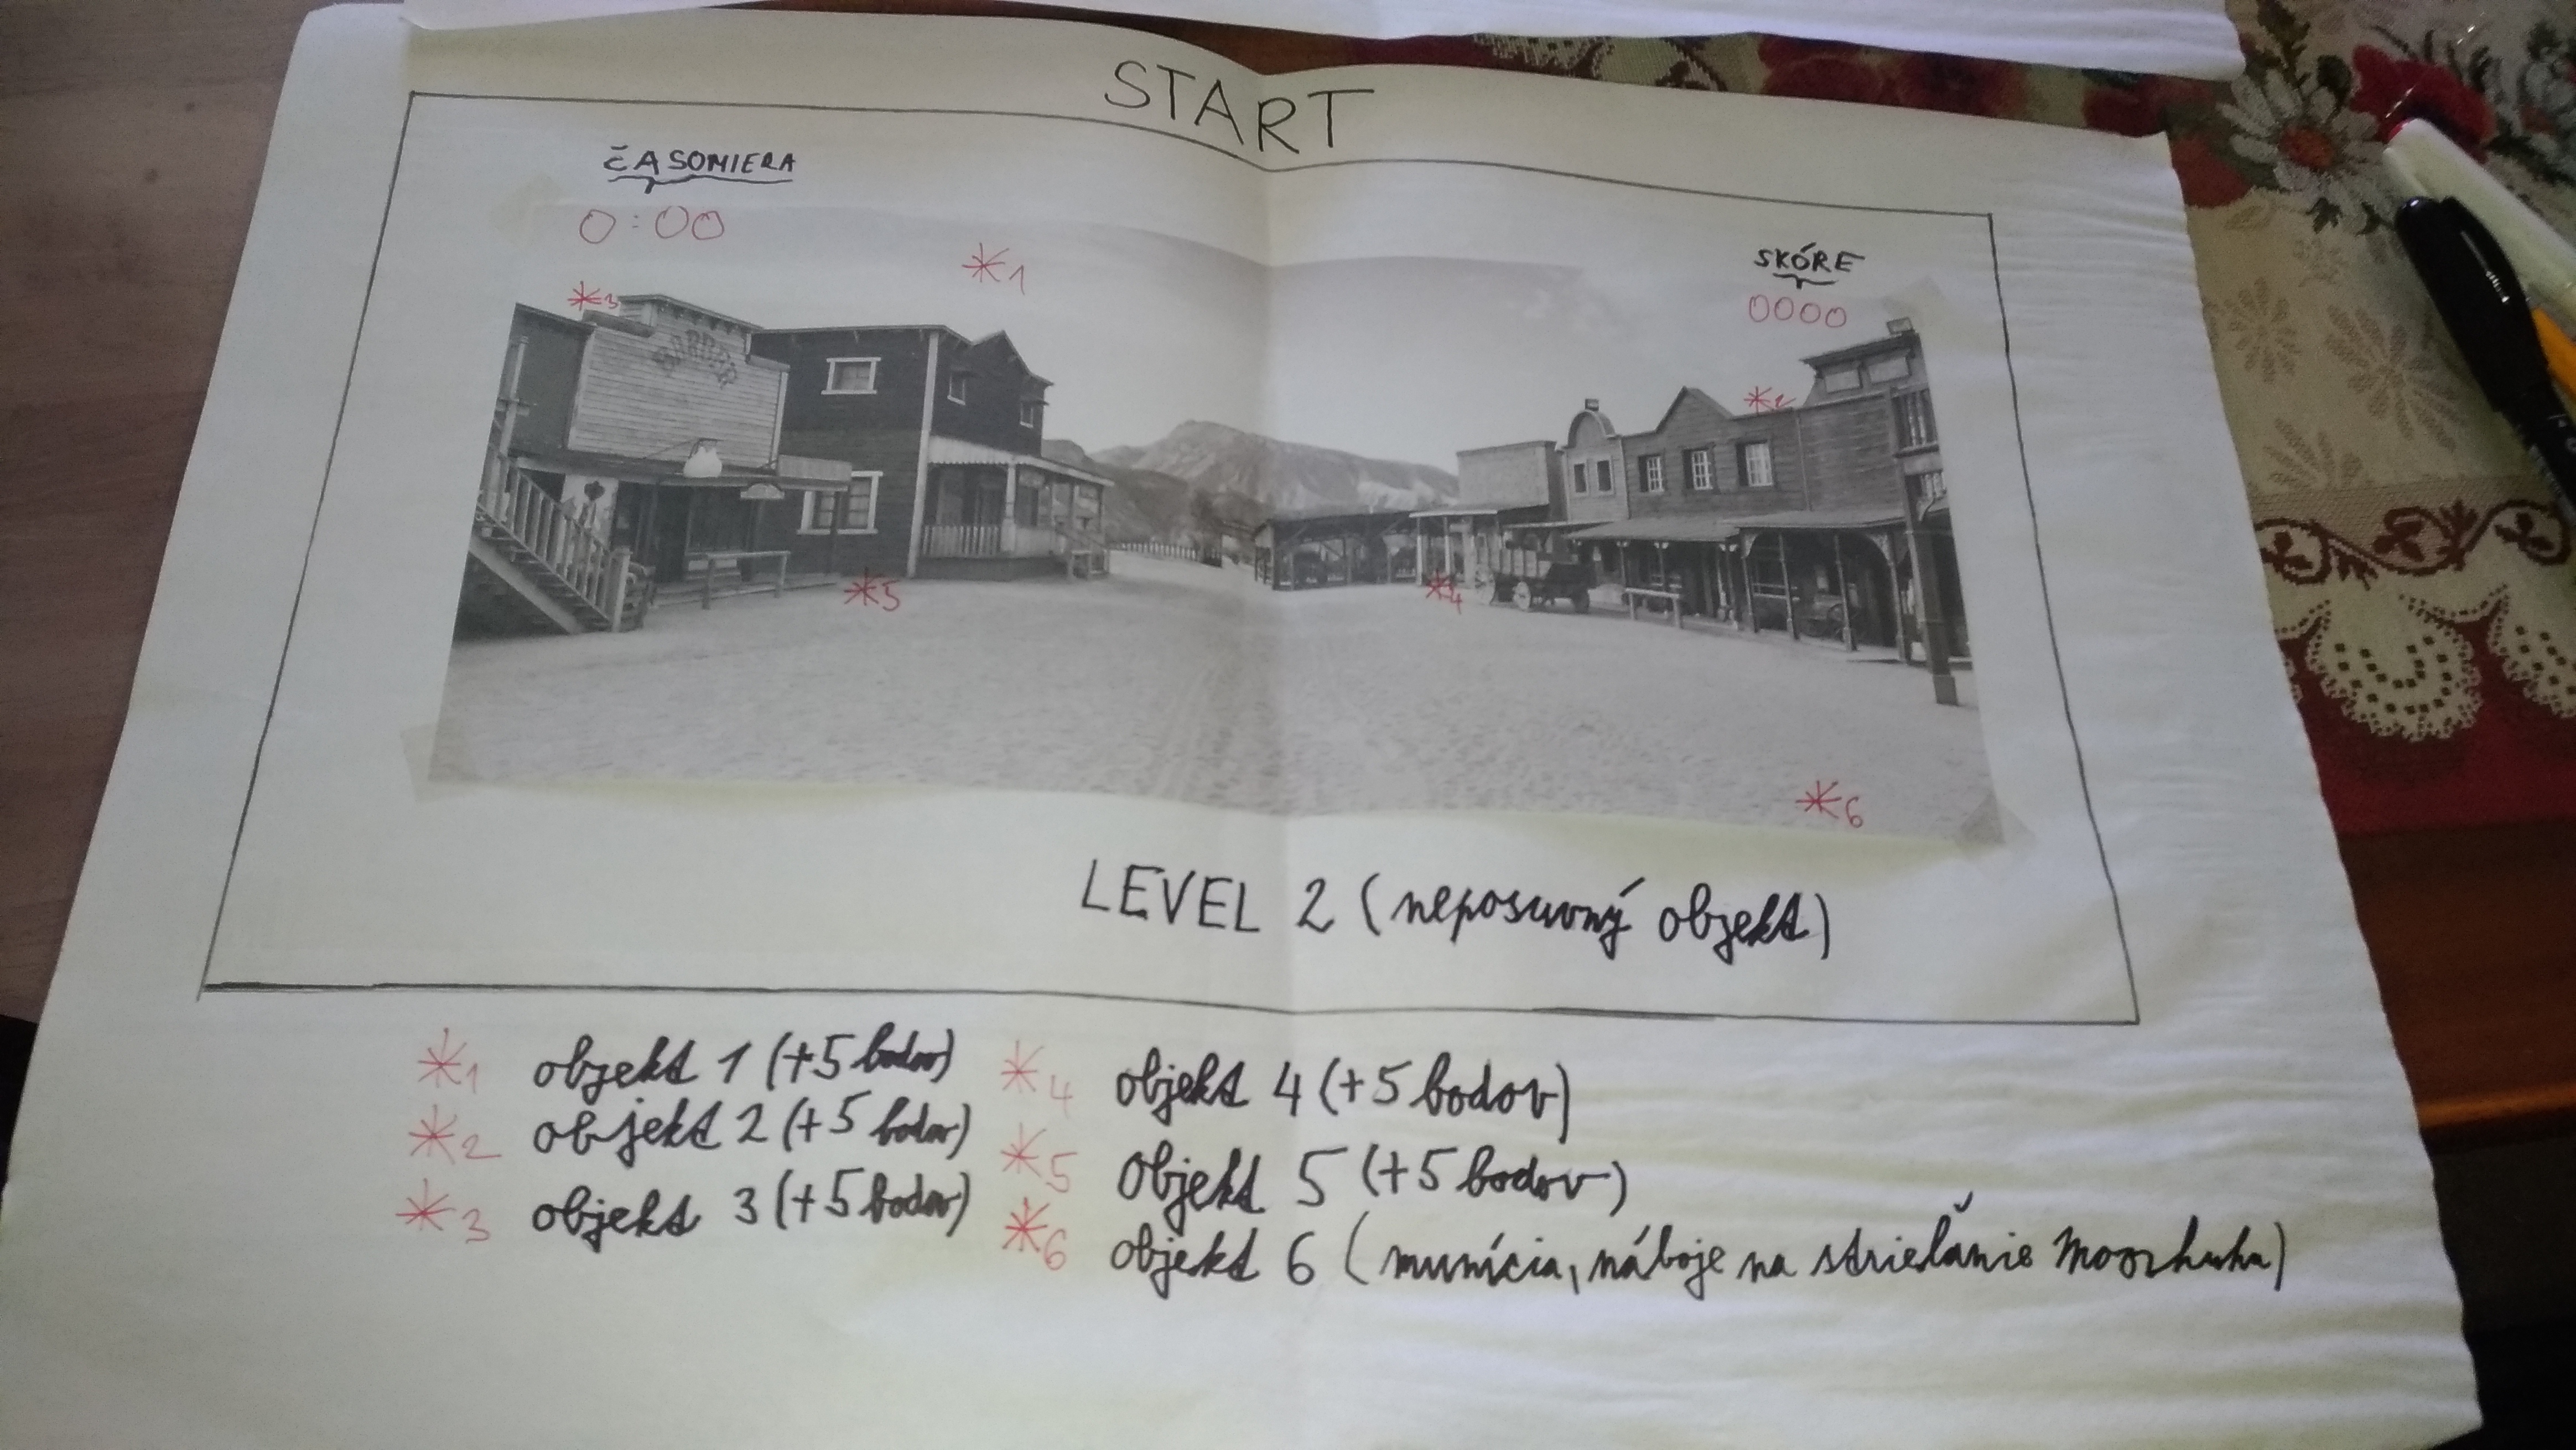 START
ČASOMIERA
0:00
*1
SKÓRE
0000
*3
BARBER
*2
*5
*4
*6
LEVEL 2 (neposuvný objekt)
*1 objekt 1 (+5 bodov)
*2 objekt 2 (+5 bodov)
*3 objekt 3 (+5 bodov)
*4 objekt 4 (+5 bodov)
*5 objekt 5 (+5 bodov)
*6 objekt 6 (munícia, náboje na strieľanie Moorhuhn)